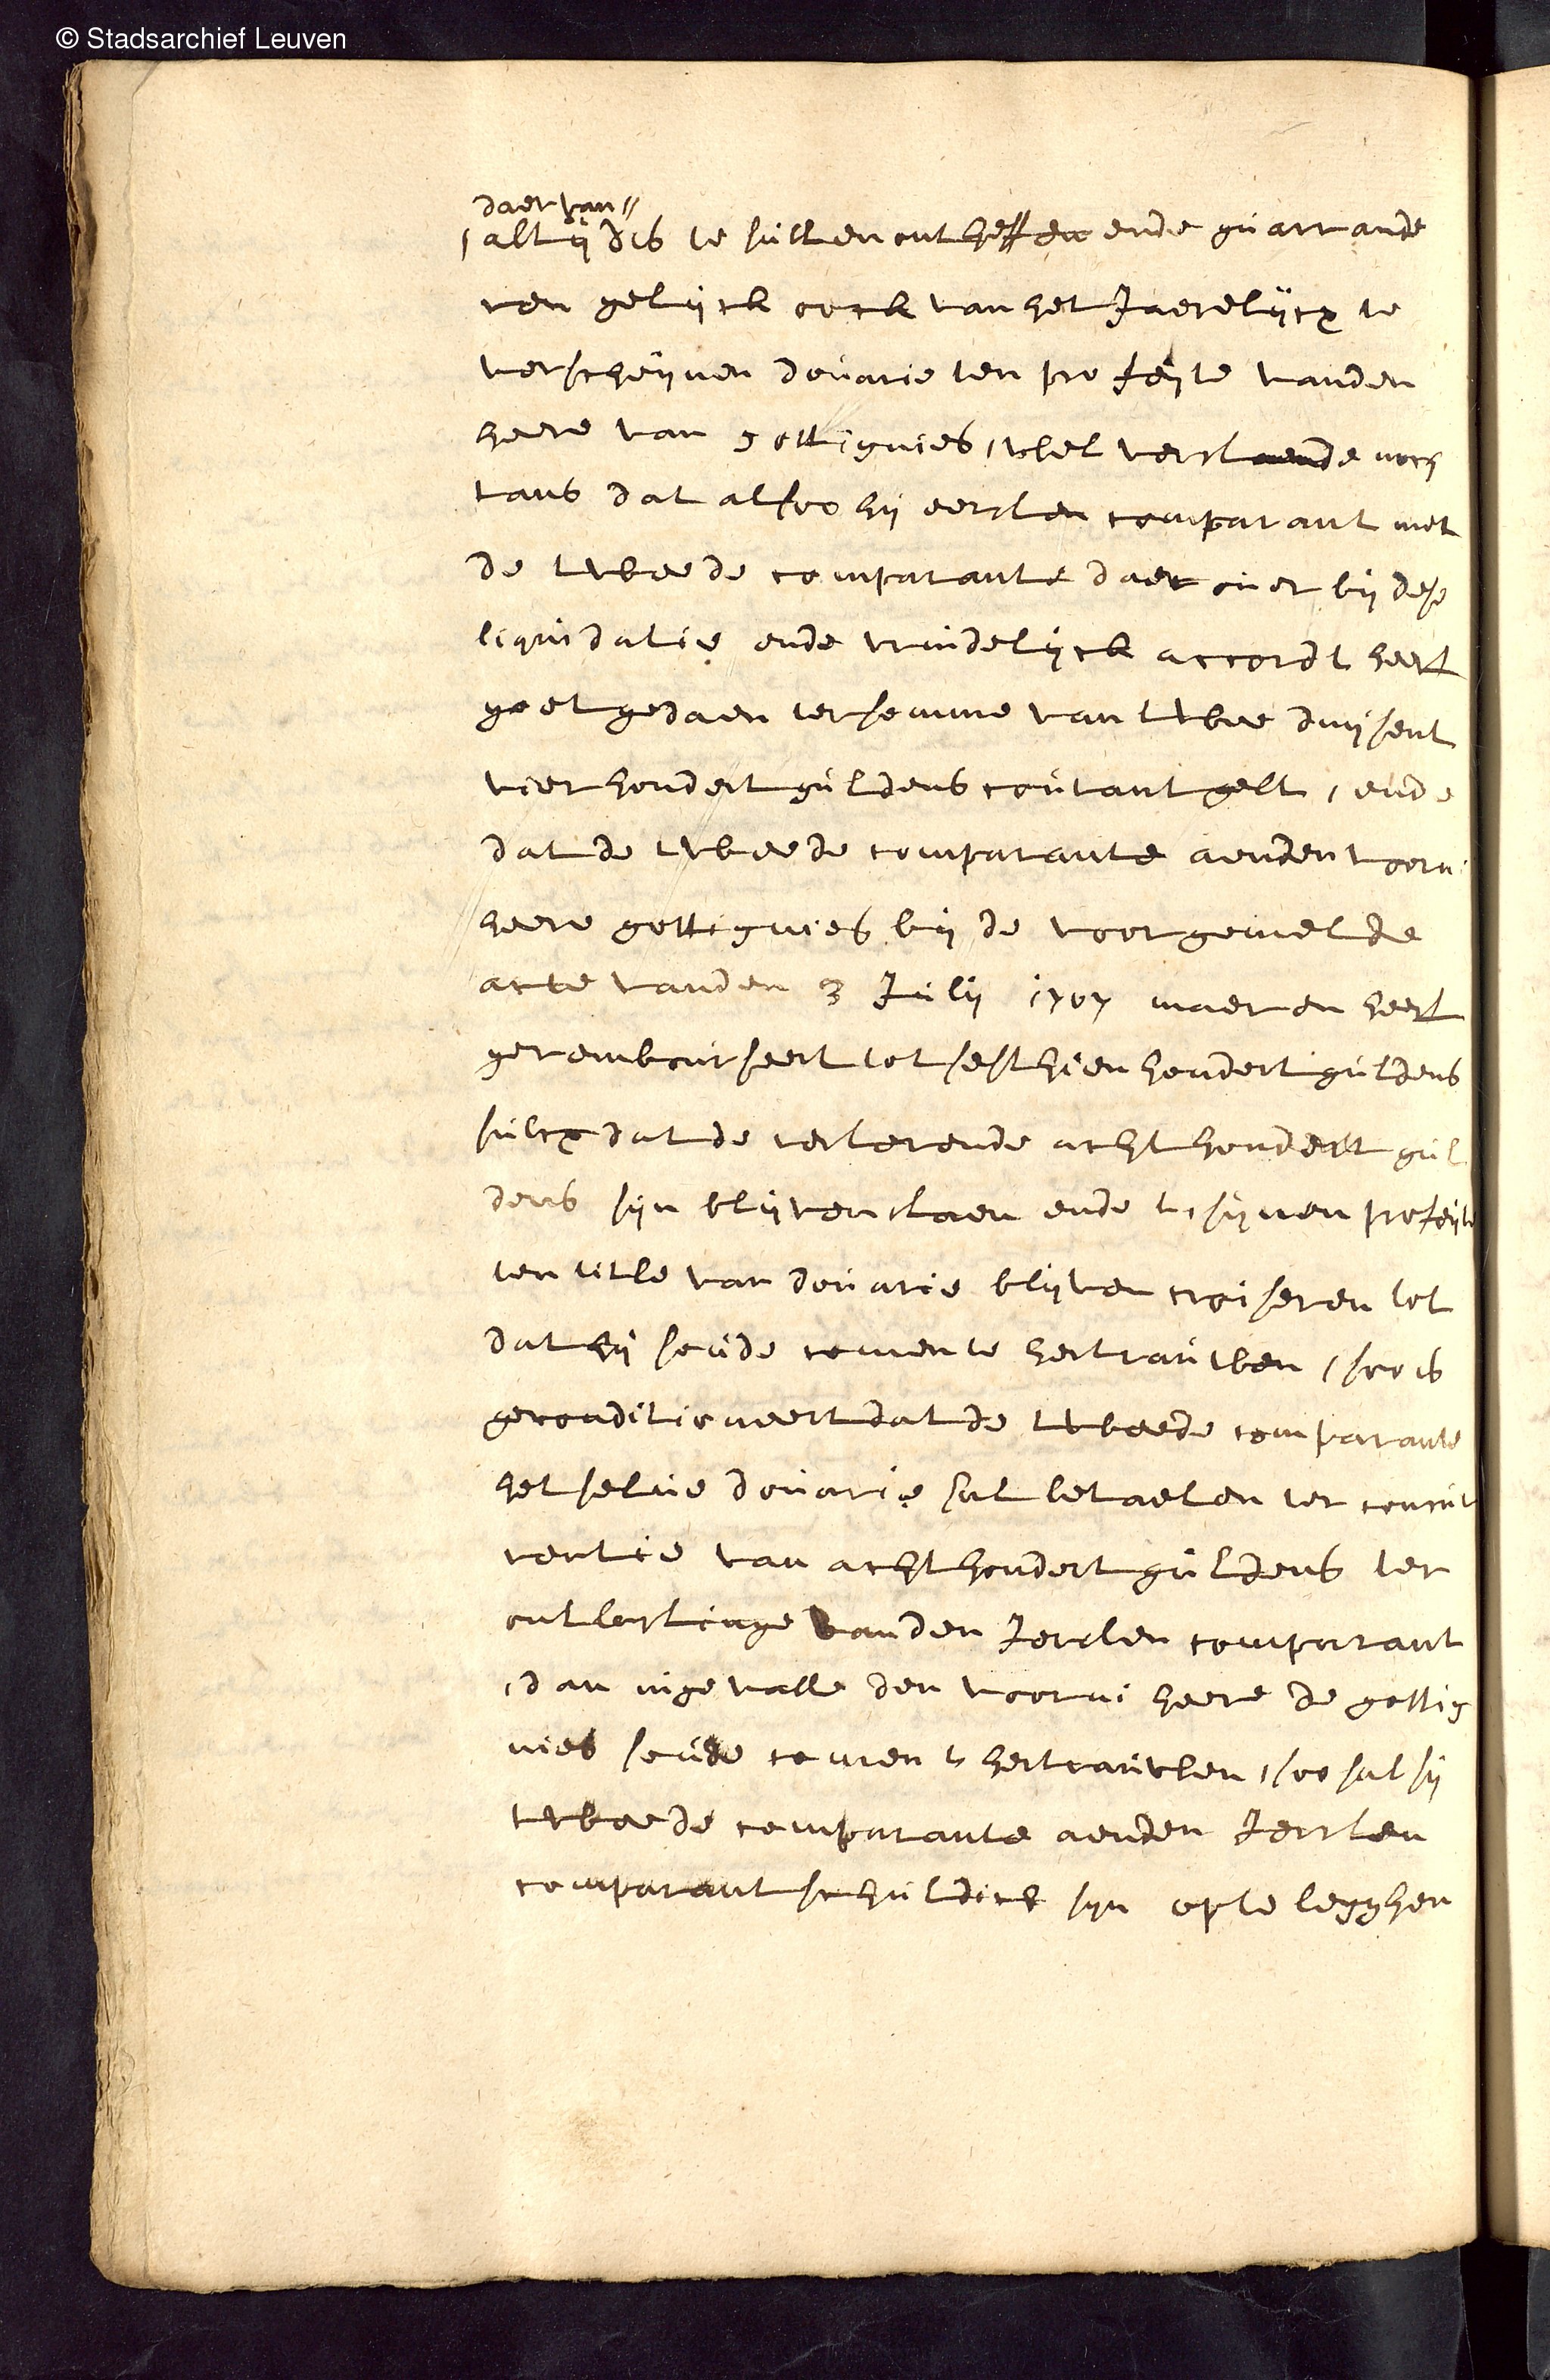 © Stadsarchief Leuven
daer van //
altijdts te sullen ontheffen ende guarrande
ren gelijck oock van het Jaerelijcx te
verscheijnen douarie ten profeijte vanden
heere van gottignies, wel verstaende noch
tans dat alsoo hij eersten comparant met
de tweede comparante daer over bij dese
liquidatie ende vrindelijck accordt heeft
goet gedaen ter somme van twee duijsent
vier hondert guldens courant gelt, ende
dat de tweede comparante aenden voorn:
heere gottignies bij de voorgemelde
acte vanden 3 Julij 1707 maer en heeft
gerembourseert tot sesthien hondert guldens
sulcx dat de resterende acht hondert gul
dens sijn blijven staen ende te sijnen profeijte
ten titele van douarie blijven croiseren tot
dat hij soude comen te hertrauwen, soo is
geconditioneert dat de tweede comparante
het selve douarie sal betaelen ter concur
rentie van acht hondert guldens ter
ontlastinge vanden Iersten comparant
, dan inge valle den voorn: heere de gottig
nies soude comen te hertrauwen, soo sal sij
tweede comparante aenden Iersten
comparant schuldich sijn op te legghen